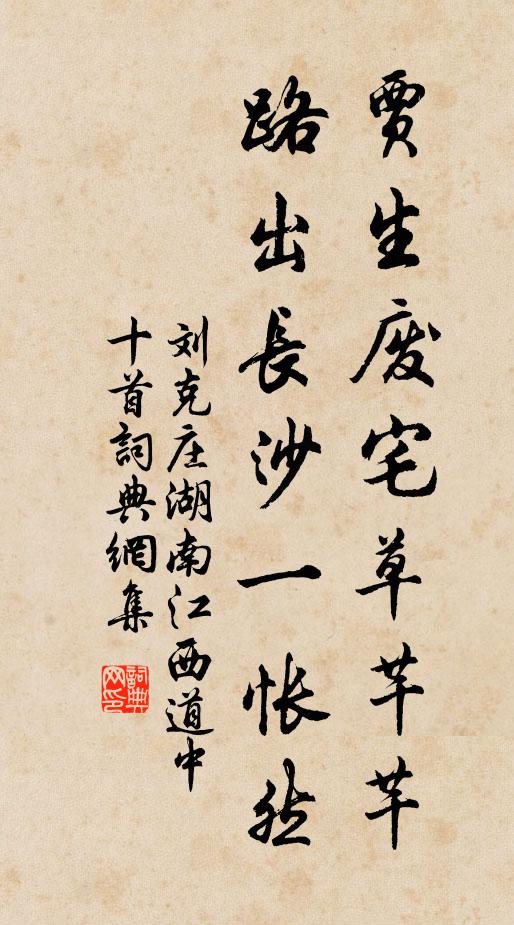 賈生废宅草芊芊
路出長沙一悵然
刘克庄湖南江西道中
十首詞典網集
詞典
网印